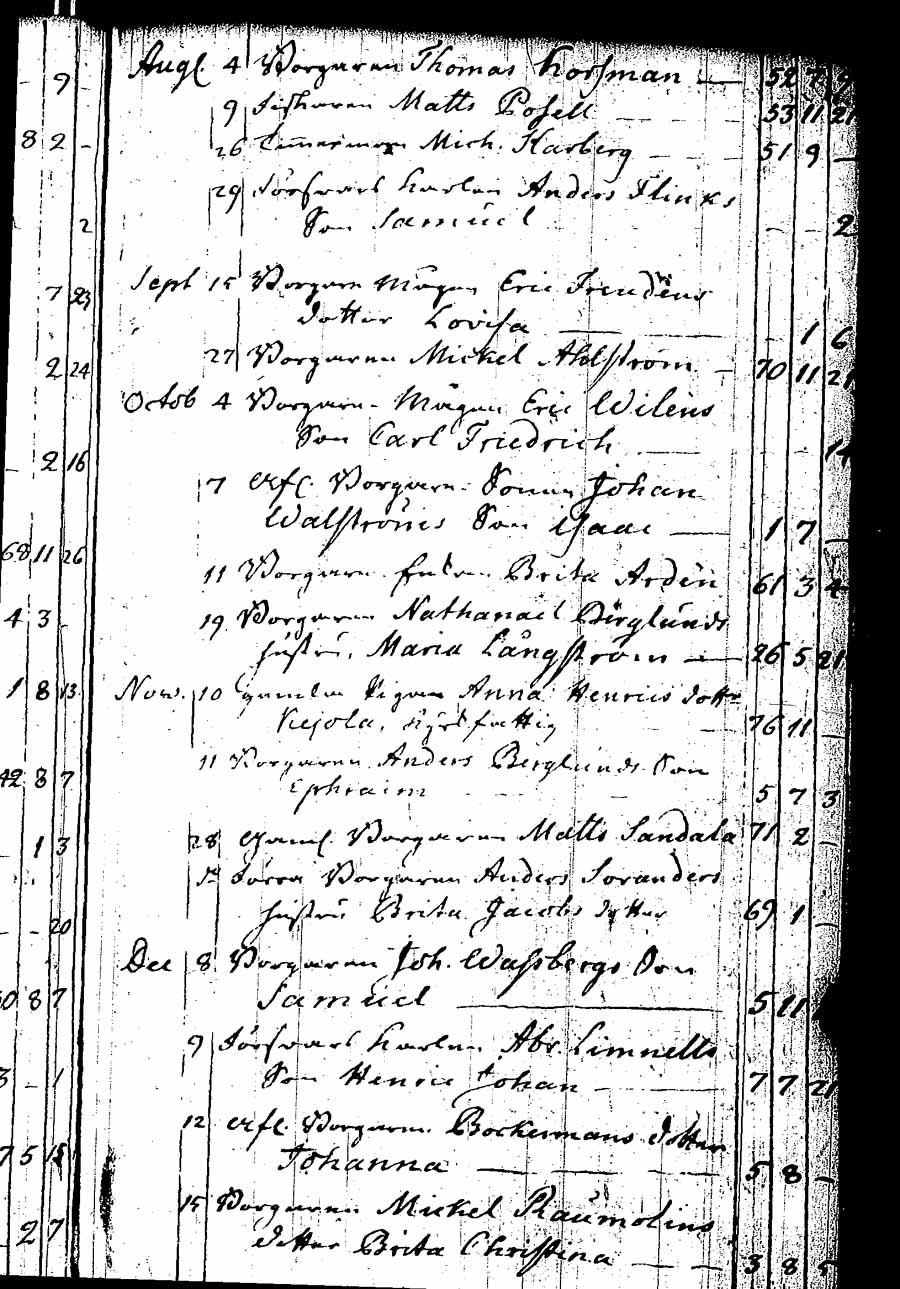 9 Augl. 4 Borgaren Thomas Korsman — 52 7 9
9 Fiskaren Matts Posell 53 11 21
8 2 - 26 Timmerman Mich. Karberg 51 9 —
29 Försvars Karlen Anders Flinks
2 Son Samuel 2
7 23 Sept 15 Borgare Mågen Eric Freudens
dotter Lovisa — 1 6
2 24 27 Borgaren Mickel Ahlström 70 11 21
Octob 4 Borgare - Mågen Eric Wilens
2 16 Son Carl Friedrich 14
7 Afl. Borgare Sonen Johan
Walströms Son Isaac — 1 7 —
68 11 26 11 Borgare Enkan Brita Arden 61 3 4
4 3 19 Borgaren Nathanael Berglunds
hustru, Maria Långström — 26 5 21
1 8 13 Nov. 10 gamla Pigan Anna Henrics dottr
Kejola, 76 11 —
11 Borgaren Anders Berglunds Son
42 8 7 Ephraim 5 7 3
1 3 28 Gaml. Borgaren Matts Sandala 71 2 —
Borgaren Anders Soranders
20 hustru Brita Jacobs dotter 69 1 —
Dec 8 Borgaren Joh. Wassbergs Son
8 7 Samuel — 5 11
9 Försvars Karlen Abr. Limnells
1 Son Henric Johan 7 7 21
12 Afl. Borgaren Bockermans dotter
7 5 Johanna — 5 8 —
15 Borgaren Mickel Raumolins
2 7 dotter Brita Christina — 3 8